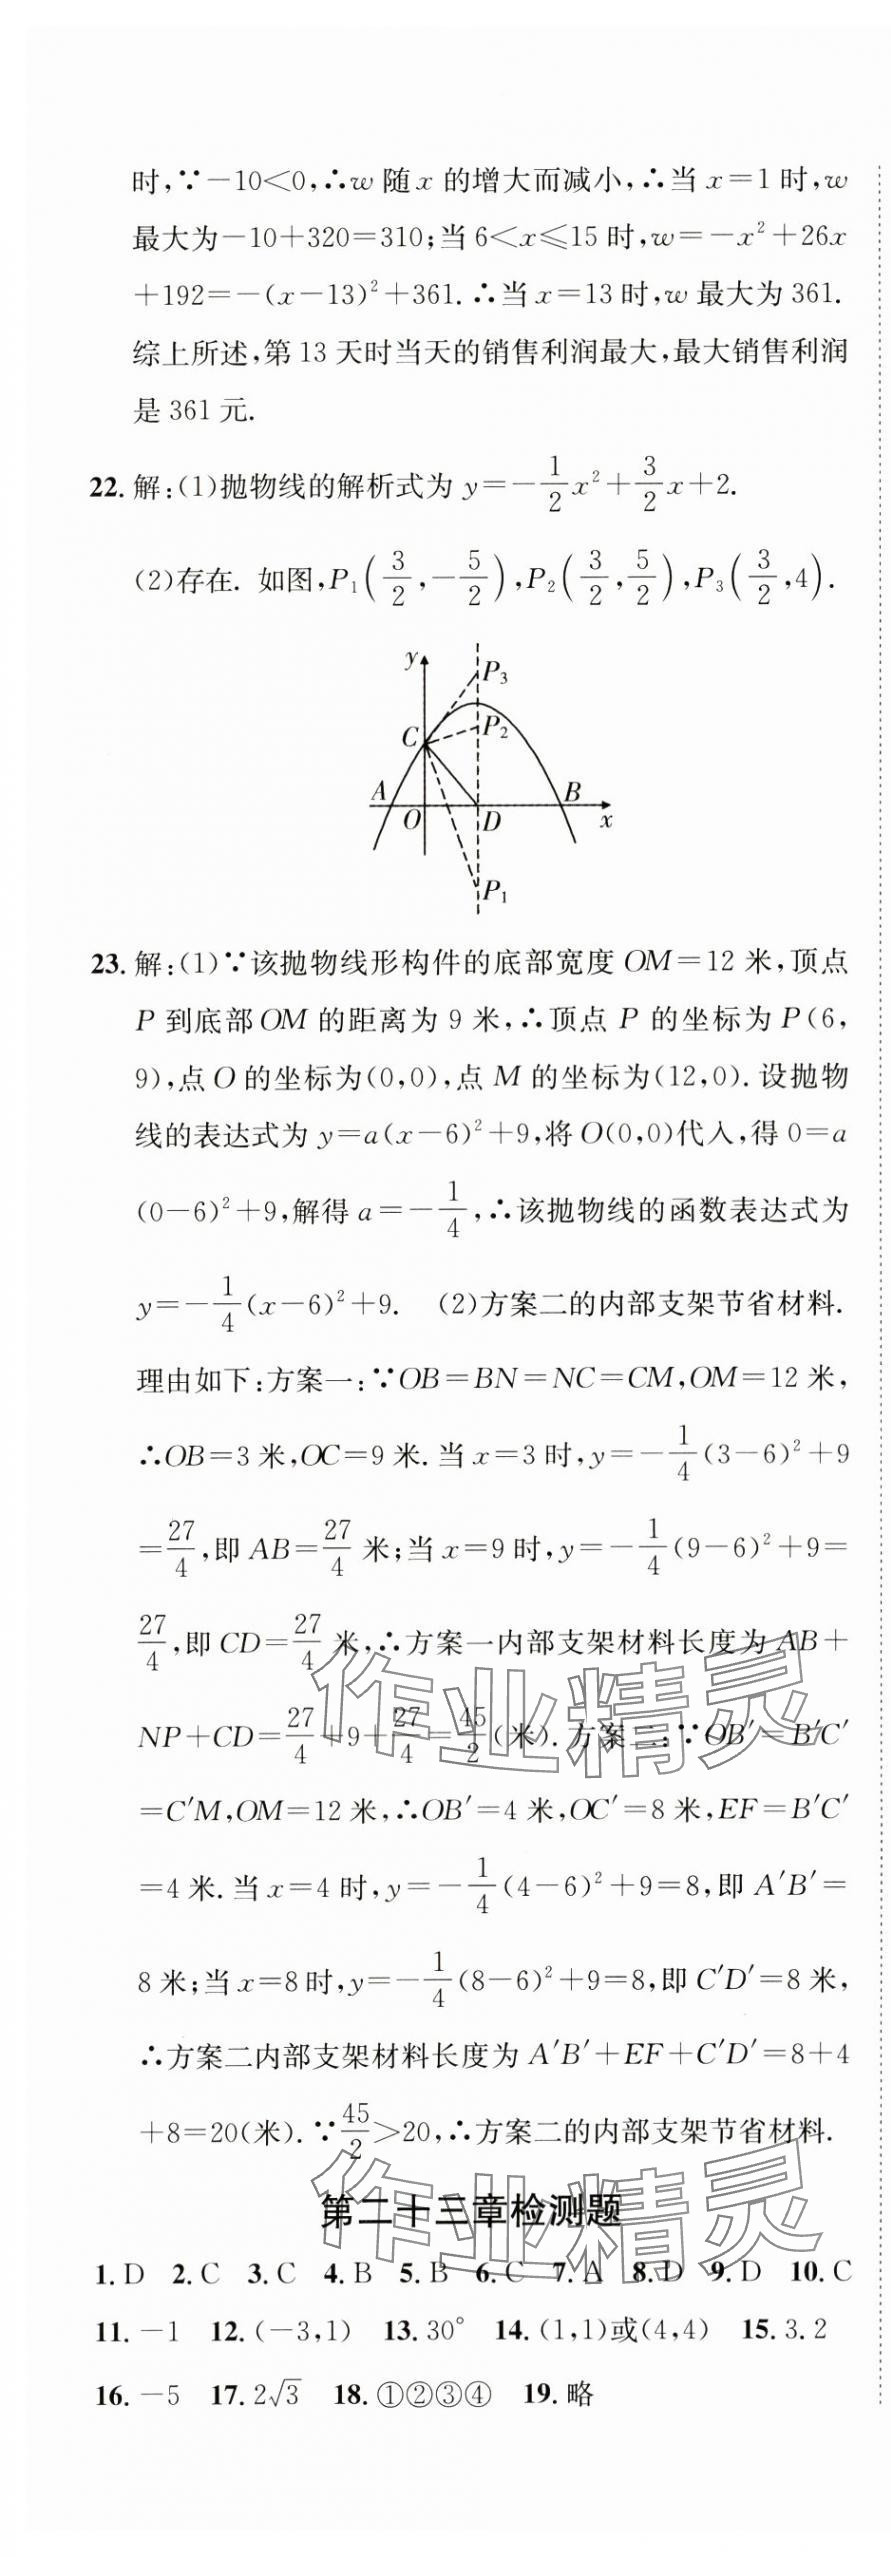 时,∵-10<0,∴w 随 x 的增大而减小,∴当 x=1 时,w
最大为-10+320=310;当 6<x≤15 时,w=-x²+26x
+192=-(x-13)²+361.∴当 x=13 时,w 最大为 361.
综上所述,第 13 天时当天的销售利润最大,最大销售利润
是 361 元.
22. 解:(1)抛物线的解析式为 y=-1/2x²+3/2x+2.
(2)存在. 如图,P₁(3/2,-5/2),P₂(3/2,5/2),P₃(3/2,4).
y
P₃
C
P₂
A
B
O
D
x
P₁
23. 解:(1)∵该抛物线形构件的底部宽度 OM=12 米,顶点
P 到底部 OM 的距离为 9 米,∴顶点 P 的坐标为 P(6,
9),点 O 的坐标为(0,0),点 M 的坐标为(12,0). 设抛物
线的表达式为 y=a(x-6)²+9,将 O(0,0)代入,得 0=a
(0-6)²+9,解得 a=-1/4,∴该抛物线的函数表达式为
y=-1/4(x-6)²+9. (2)方案二的内部支架节省材料.
理由如下:方案一:∵OB=BN=NC=CM,OM=12 米,
∴OB=3 米,OC=9 米. 当 x=3 时,y=-1/4(3-6)²+9
=27/4,即 AB=27/4 米;当 x=9 时,y=-1/4(9-6)²+9=
27/4,即 CD=27/4 米,∴方案一内部支架材料长度为 AB+
NP+CD=27/4+9+27/4=45/2(米). 方案二:∵OB′=B′C′
=C′M,OM=12 米,∴OB′=4 米,OC′=8 米,EF=B′C′
=4 米. 当 x=4 时,y=-1/4(4-6)²+9=8,即 A′B′=
8 米;当 x=8 时,y=-1/4(8-6)²+9=8,即 C′D′=8 米,
∴方案二内部支架材料长度为 A′B′+EF+C′D′=8+4
+8=20(米).∵45/2>20,∴方案二的内部支架节省材料.
作业精灵
第二十三章检测题
作业精灵
1. D 2. C 3. C 4. B 5. B 6. C 7. A 8. D 9. D 10. C
11. -1 12. (-3,1) 13. 30° 14. (1,1)或(4,4) 15. 3.2
16. -5 17. 2√3 18. ①②③④ 19. 略